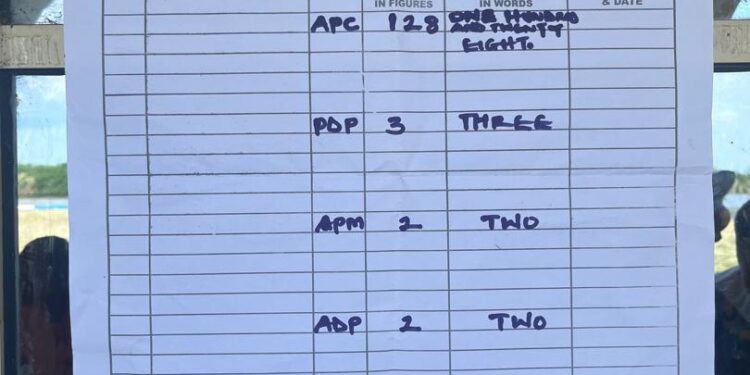 IN FIGURES IN WORDS & DATE
APC 128 ONE HUNDRED
AND TWENTY
EIGHT.
PDP 3 THREE
APM 2 TWO
ADP 2 TWO